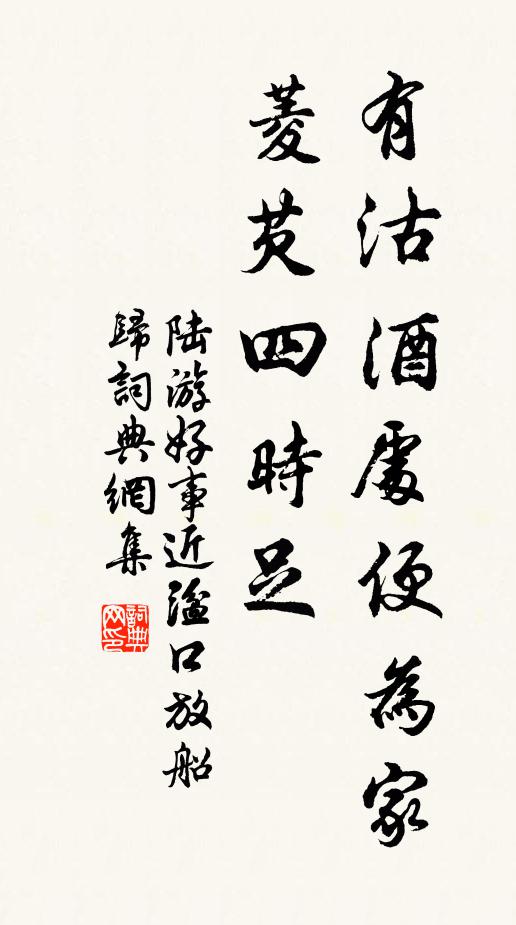 有沽酒處便為家
菱芡四時足
陆游好事近湓口放船
歸詞典網集
詞典
网印